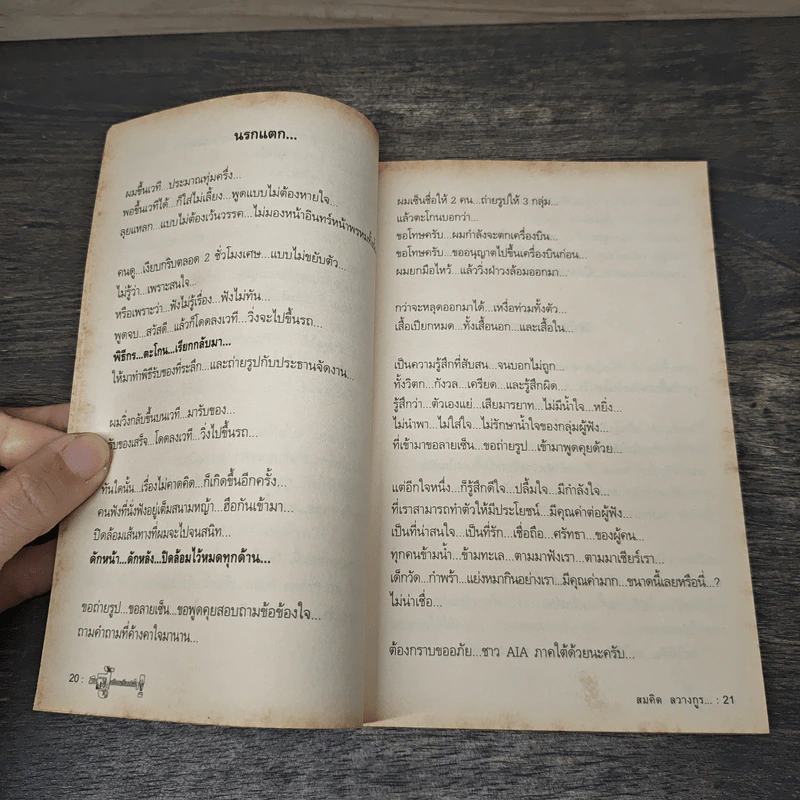 นรกแตก...
ผมขึ้นเวที...ประมาณทุ่มครึ่ง...
พอขึ้นเวทีได้...ก็ใส่ไม่เลี้ยง...พูดแบบไม่ต้องหายใจ...
ลุยแหลก...แบบไม่ต้องเว้นวรรค...ไม่มองหน้าอินทร์หน้าพรหม
คนดู...เงียบกริบตลอด 2 ชั่วโมงเศษ...แบบไม่ขยับตัว...
ไม่รู้ว่า...เพราะสนใจ...
หรือเพราะว่า...ฟังไม่รู้เรื่อง...ฟังไม่ทัน...
พูดจบ...สวัสดี...แล้วก็โดดลงเวที...วิ่งจะไปขึ้นรถ...
พิธีกร...ตะโกน...เรียกกลับมา...
ให้มาทำพิธีรับของที่ระลึก...และถ่ายรูปกับประธานจัดงาน...
ผมวิ่งกลับขึ้นบนเวที...มารับของ...
รับของเสร็จ...โดดลงเวที...วิ่งไปขึ้นรถ...
ทันใดนั้น...เรื่องไม่คาดคิด...ก็เกิดขึ้นอีกครั้ง...
คนฟังที่นั่งฟังอยู่เต็มสนามหญ้า...ฮือกันเข้ามา...
ปิดล้อมเส้นทางที่ผมจะไปจนสนิท...
ดักหน้า...ดักหลัง...ปิดล้อมไว้หมดทุกด้าน...
ขอถ่ายรูป...ขอลายเซ็น...ขอพูดคุยสอบถามข้อข้องใจ...
ถามคำถามที่ค้างคาใจมานาน...
20 :
ผมเซ็นชื่อให้ 2 คน...ถ่ายรูปให้ 3 กลุ่ม...
แล้วตะโกนบอกว่า...
ขอโทษครับ...ผมกำลังจะตกเครื่องบิน...
ขอโทษครับ...ขออนุญาตไปขึ้นเครื่องบินก่อน...
ผมยกมือไหว้...แล้ววิ่งฝ่าวงล้อมออกมา...
กว่าจะหลุดออกมาได้...เหงื่อท่วมทั้งตัว...
เสื้อเปียกหมด...ทั้งเสื้อนอก...และเสื้อใน...
เป็นความรู้สึกที่สับสน...จนบอกไม่ถูก...
ทั้งวิตก...กังวล...เครียด...และรู้สึกผิด...
รู้สึกว่า...ตัวเองแย่...เสียมารยาท...ไม่มีน้ำใจ...หยิ่ง...
ไม่นำพา...ไม่ใส่ใจ...ไม่รักษาน้ำใจของกลุ่มผู้ฟัง...
ที่เข้ามาขอลายเซ็น...ขอถ่ายรูป...เข้ามาพูดคุยด้วย...
แต่อีกใจหนึ่ง...ก็รู้สึกดีใจ...ปลื้มใจ...มีกำลังใจ...
ที่เราสามารถทำตัวให้มีประโยชน์...มีคุณค่าต่อผู้ฟัง...
เป็นที่น่าสนใจ...เป็นที่รัก...เชื่อถือ...ศรัทธา...ของผู้คน...
ทุกคนข้ามน้ำ...ข้ามทะเล...ตามมาฟังเรา...ตามมาเชียร์เรา...
เด็กวัด...กำพร้า...แย่งหมากินอย่างเรา...มีคุณค่ามาก...ขนาดนี้เลยหรือนี่...?
ไม่น่าเชื่อ...
ต้องกราบขออภัย...ชาว AIA ภาคใต้ด้วยนะครับ...
สมคิด ลวางกูร... : 21